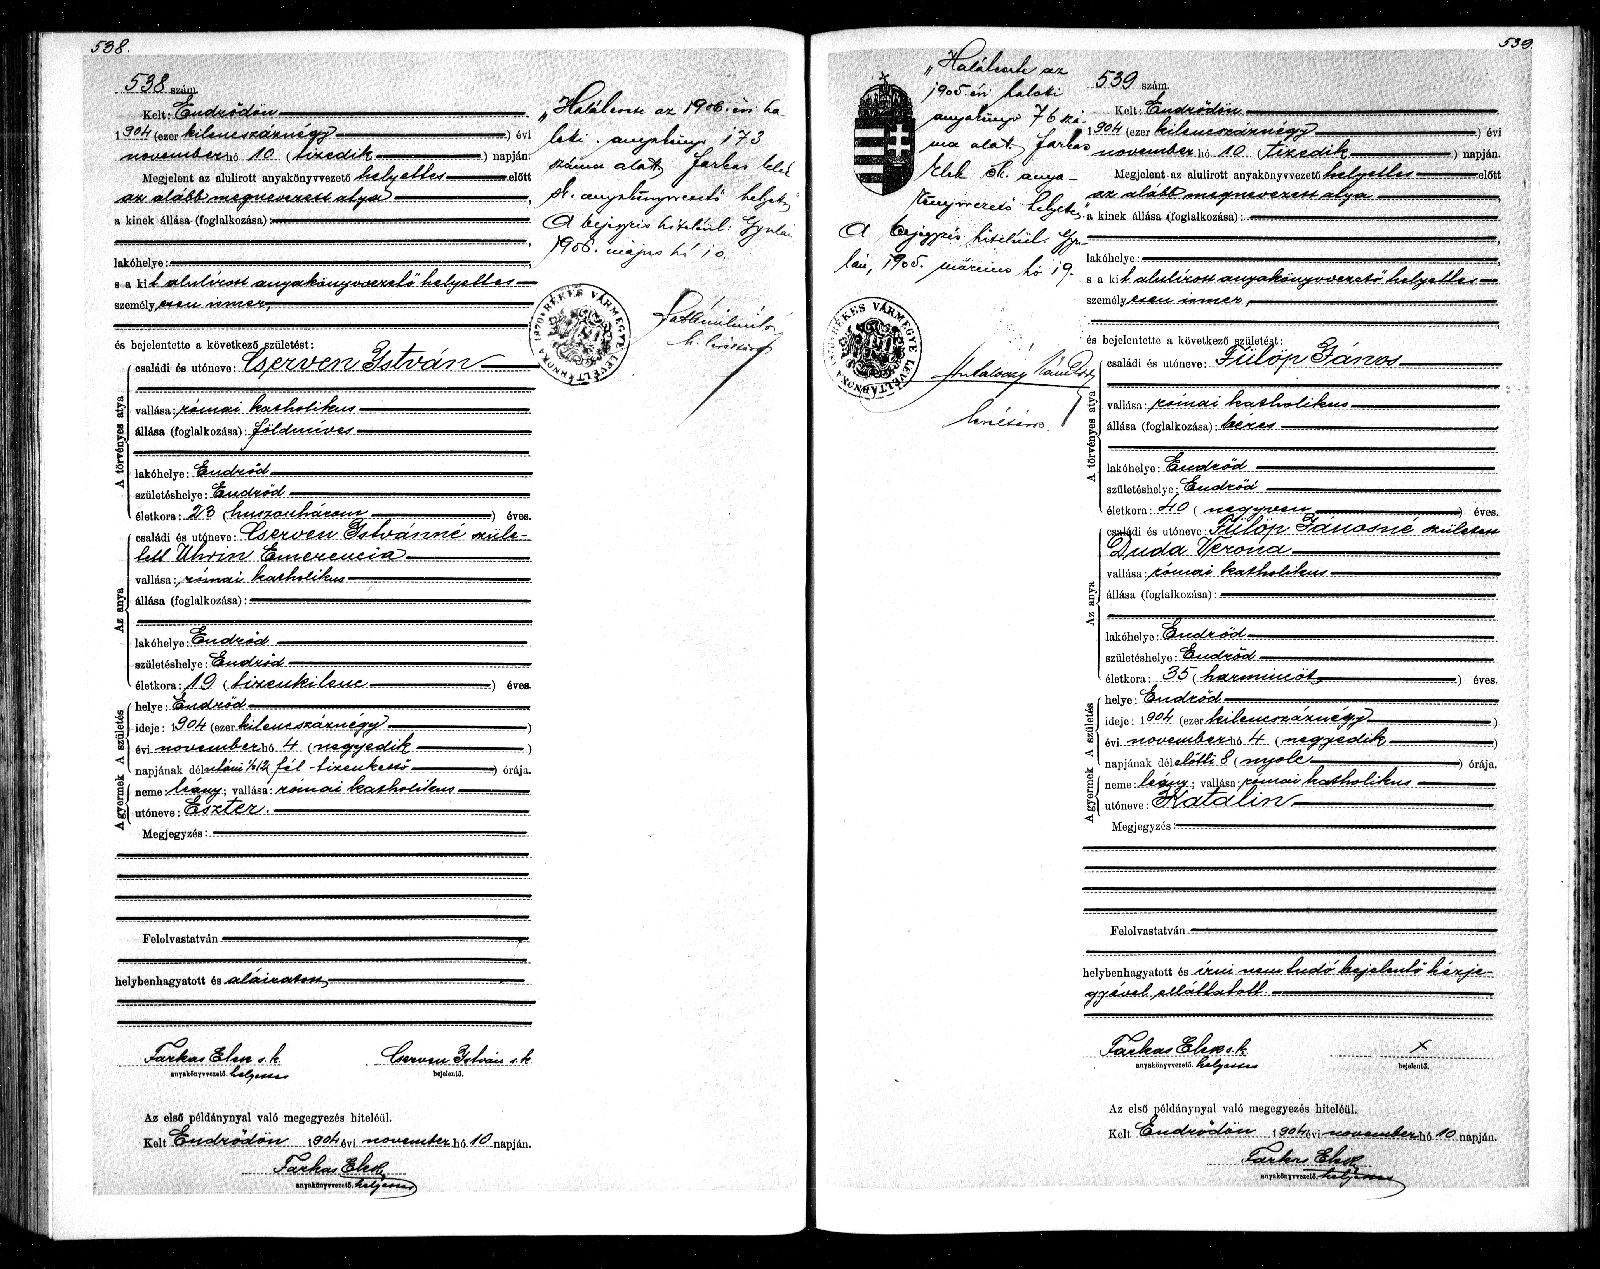 538.
538 szám
Kelt: Endrődön
1904 (ezer kilencszáznégy) évi
november hó 10 (tizedik) napján.
Megjelent az alulirott anyakönyvvezető helyettes előtt
az alább megnevezett atya
a kinek állása (foglalkozása):
lakóhelye:
s a kit alulírott anyakönyvvezető helyettes
személyesen ismer,
és bejelentette a következő születést:
A törvényes atya
családi és utóneve: Cserven István
vallása: római katholikus
állása (foglalkozása): földműves
lakóhelye: Endrőd
születéshelye: Endrőd
életkora: 23 (huszonhárom) éves.
Az anya
családi és utóneve: Cserven Istvánné szüle-
tett Uhrin Emerencia
vallása: római katholikus
állása (foglalkozása):
lakóhelye: Endrőd
születéshelye: Endrőd
életkora: 19 (tizenkilenc) éves.
A gyermek A születés
helye: Endrőd
ideje: 1904 (ezer kilencszáznégy)
évi november hó 4 (negyedik)
napjának délutáni ½12 (fél-tizenkettő) órája.
neme: leány; vallása: római katholikus
utóneve: Eszter.
Megjegyzés:
Felolvastatván
helybenhagyatott és aláiratott
Farkas Elek s.k. Cserven István s.k.
anyakönyvvezető. helyettes bejelentő.
Az első példánynyal való megegyezés hiteléül.
Kelt Endrődön 1904 évi november hó 10 napján.
Farkas Elek
anyakönyvvezető. helyettes
„Halálesete az 1906. évi ha-
loti anyakönyv 173
száma alatt Farkas Elek
sk. anyakönyvvezető helyettes
A bejegyzés hiteléül: Gyulán
1906. május hó 10.
BÉKÉS VÁRMEGYE LEVÉLTÁRNOKA 1870
539
„Halálesete az
1905. évi haloti
anyakönyv 76 szá-
ma alatt Farkas
Elek sk. anya-
könyvvezető helyettes"
A bejegyzés hiteléül. Gyu-
lán, 1905. március hó 19.
BÉKÉS VÁRMEGYE LEVÉLTÁRNOKA
levéltáros.
539 szám.
Kelt: Endrődön
1904 (ezer kilencszáznégy) évi
november hó 10 (tizedik) napján.
Megjelent az alulirott anyakönyvvezető helyettes előtt
az alább megnevezett atya
a kinek állása (foglalkozása):
lakóhelye:
s a kit alulírott anyakönyvvezető helyettes
személyesen ismer,
és bejelentette a következő születést:
A törvényes atya
családi és utóneve: Fülöp János
vallása: római katholikus
állása (foglalkozása): béres
lakóhelye: Endrőd
születéshelye: Endrőd
életkora: 40 (negyven) éves.
Az anya
családi és utóneve: Fülöp Jánosné született
Duda Verona
vallása: római katholikus
állása (foglalkozása):
lakóhelye: Endrőd
születéshelye: Endrőd
életkora: 35 (harmincöt) éves.
A gyermek A születés
helye: Endrőd
ideje: 1904 (ezer kilencszáznégy)
évi november hó 4 (negyedik)
napjának délelőtti 8 (nyolc) órája.
neme: leány; vallása: római katholikus
utóneve: Katalin
Megjegyzés:
Felolvastatván
helybenhagyatott és írni nem tudó bejelentő kézje-
gyével elláttatott.
Farkas Elek s.k. x
anyakönyvvezető. helyettes bejelentő.
Az első példánynyal való megegyezés hiteléül.
Kelt Endrődön 1904 évi november hó 10 napján.
Farkas Elek
anyakönyvvezető. helyettes